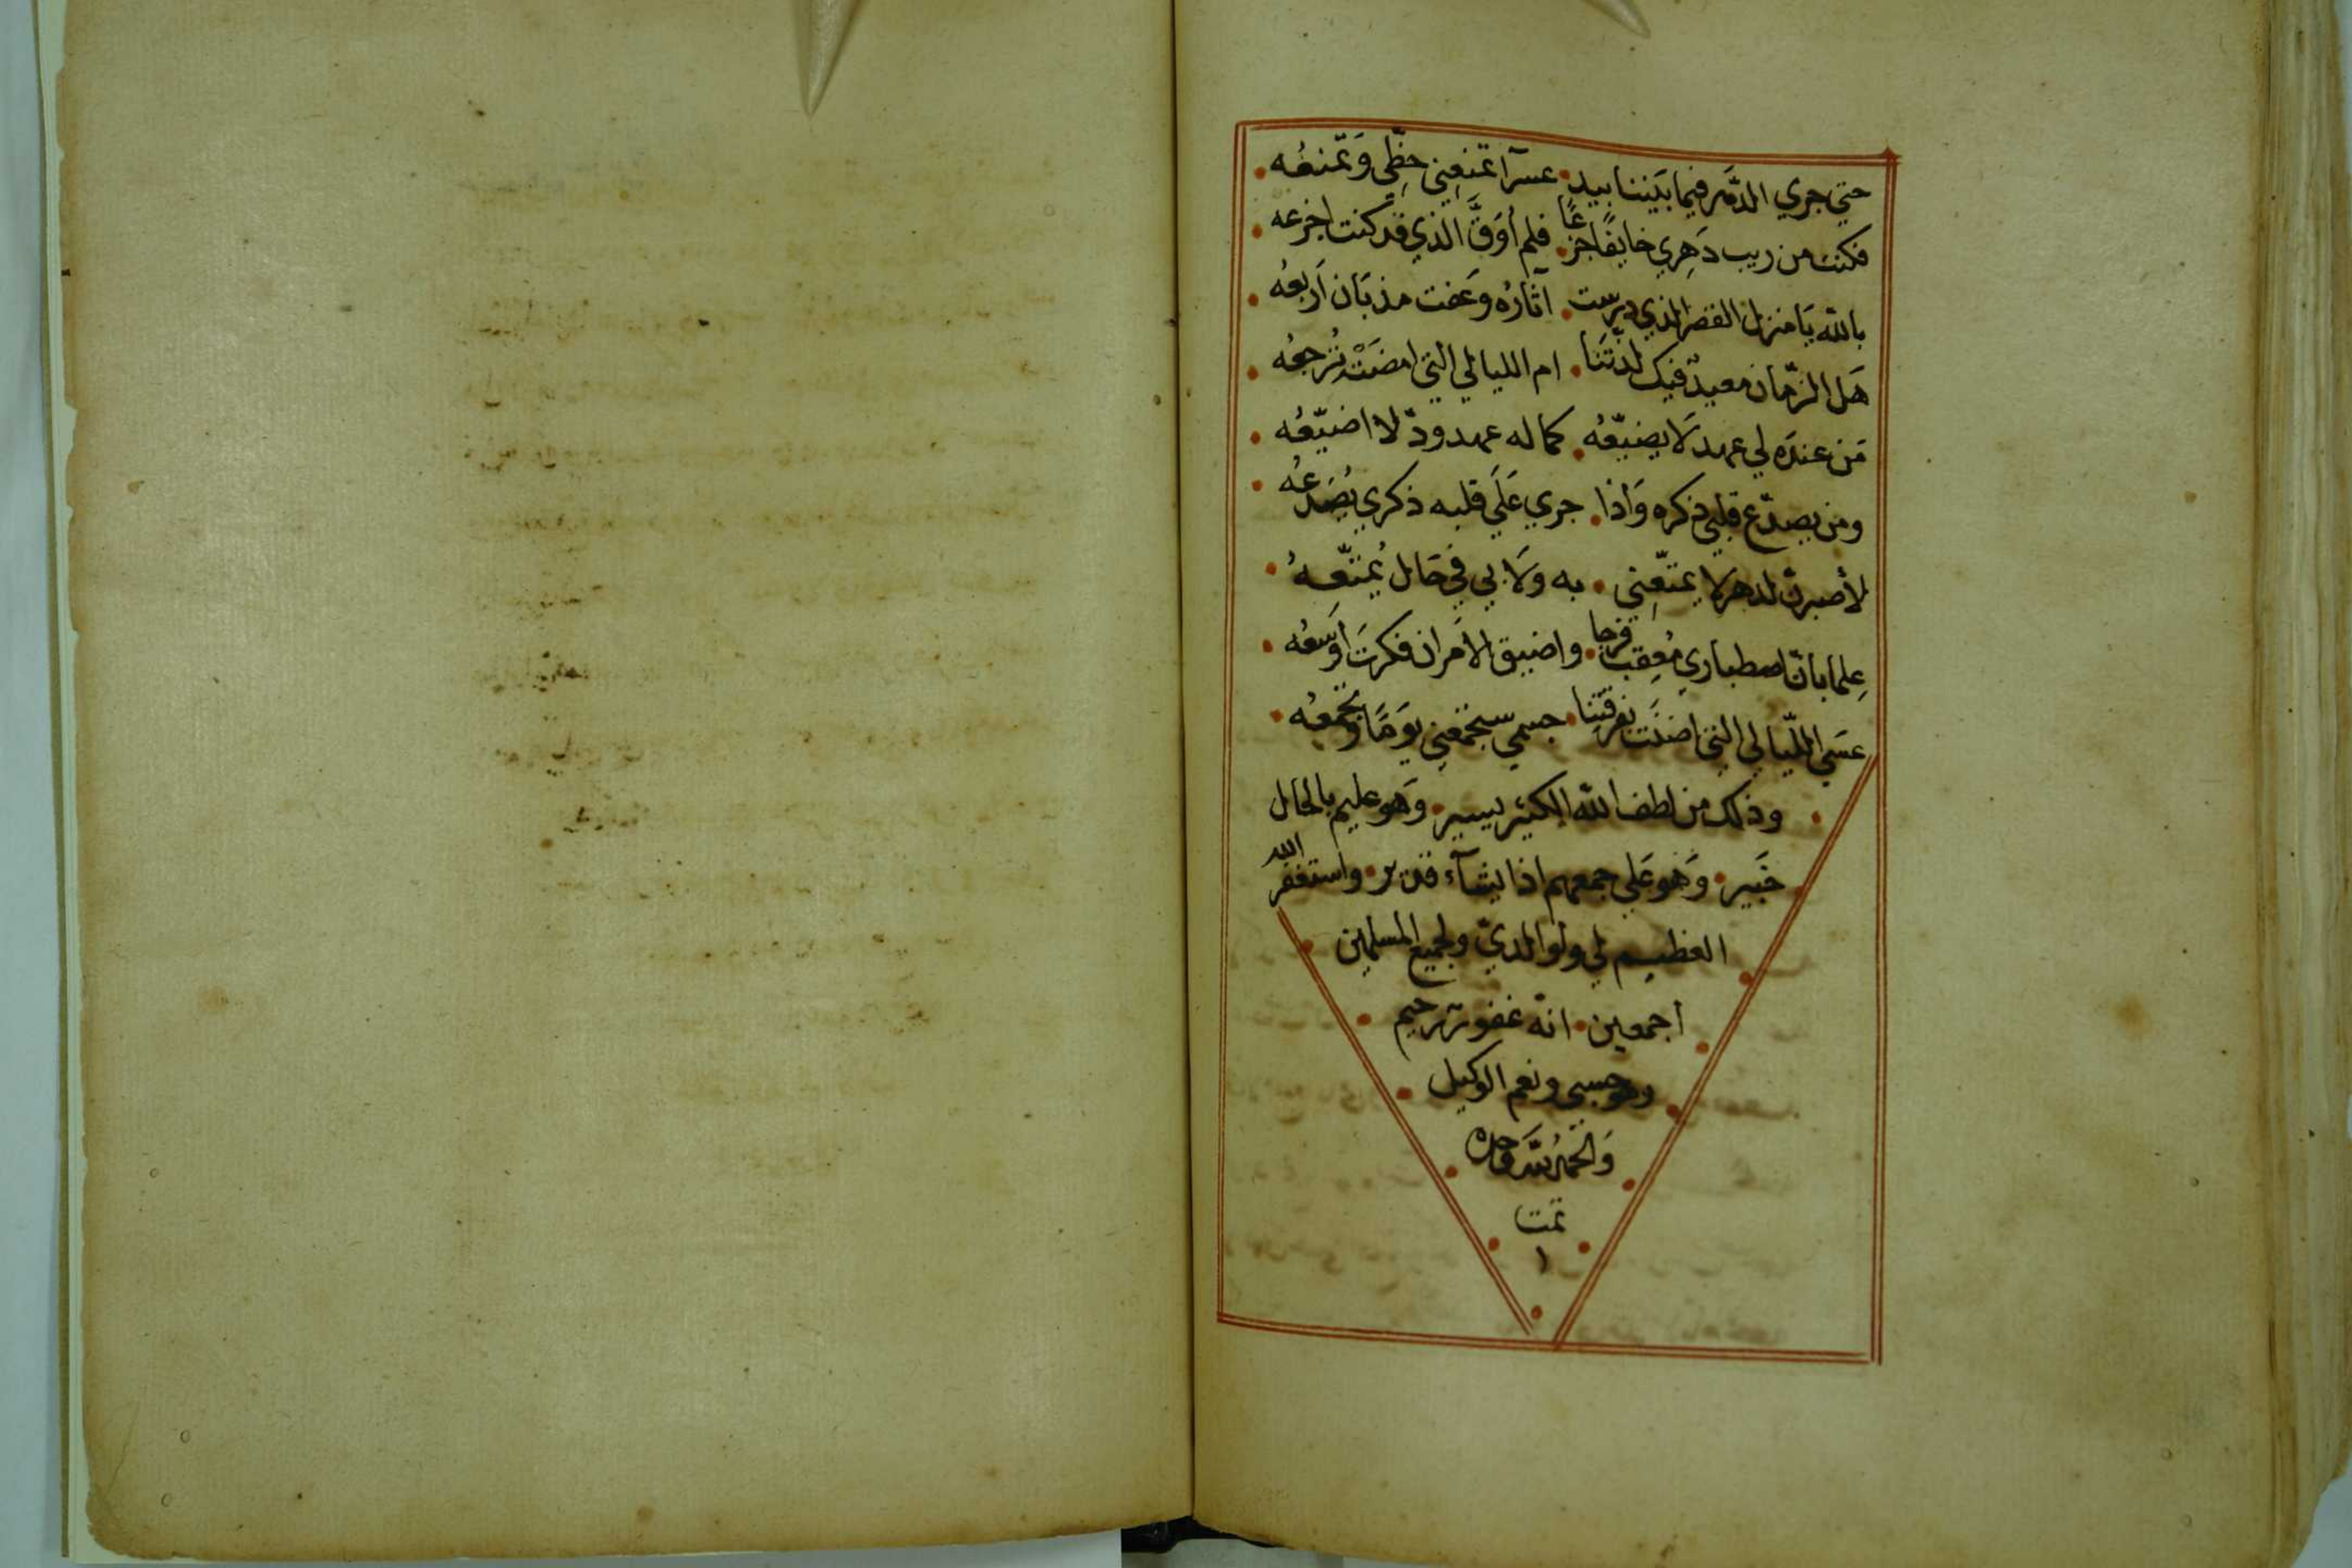 حتي جري الدَّهر فيما بَيننا بيد • عسرآ تمنعِني حظِّى وَتمنعُه •
فكنت من ريب دَهِري خايفًا جزعًا • فلم أوَقَّ الذي قد كنت اجزعه •
بالله يَا منزل القصر الذي درست • آثارُه وَعفت مذ بَان اَربعُه •
هَل الزّمان معيدٌ فيك لذتنَا • ام الليالي التي امضَتْه تُرجعُه •
مَن عندَه لي عهد لَا يضيّعُه • كما له عهد ودّ لا اضيّعُه •
ومن يصدّع قلبي ذكره وَاذا • جري عَلَي قلبه ذكري يُصَدعُه •
لأصبرنّ لدهر لا يمتّعِني • به وَلَا بي فيَ حَال يُمتّعهُ •
عِلما بانّ اصطباري مُعِقب فرجا • واضيق الاَمر ان فكرتَ اَوسَعُه •
عسَي اللّيالي التي اضنَت بفرقتِنا • جسمي ستجمّعِني يوَمًا وَتجمعُه •
• وذلك من لطف الله الكثير يسير • وَهو عليم بالحَال
خَبير • وَهو عَلي جمعهم اذا يشآء قدير • واستغفر الله
العظيم لي ولوالديّ ولجميع المسلمين •
اجمعين • انّه غفور رحيم •
وهو حسبي ونعم الوكيل •
وَالحَمدُ لله وَحده •
تمت